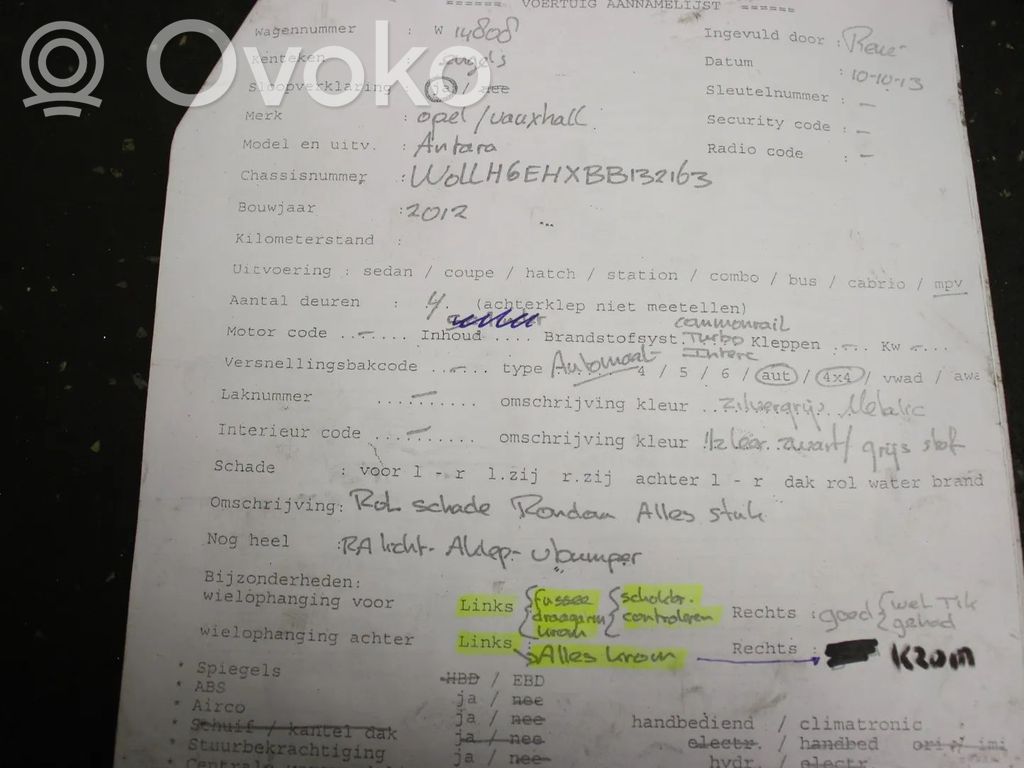 ====== VOERTUIG AANNAMELIJST ======
Wagennummer : W 14808
Ingevuld door : René
Kenteken : engels
Datum : 10-10-13
Sloopverklaring : ja / nee
Sleutelnummer : -
Merk : opel/vauxhall
Security code : -
Model en uitv. : Antara
Radio code : -
Chassisnummer : WOLLH6EHXBB132163
Bouwjaar : 2012
Kilometerstand :
Uitvoering : sedan / coupe / hatch / station / combo / bus / cabrio / mpv
Aantal deuren : 4. (achterklep niet meetellen)
commonrail
Motor code ..-.... Inhoud .... Brandstofsyst. Turbo Kleppen .-.. Kw -...
Interc
Versnellingsbakcode ..-.. type Automaat 4 / 5 / 6 / aut / 4x4 / vwad / awa
Laknummer ...-...... omschrijving kleur ..Zilvergrijs Metalic
Interieur code ...-...... omschrijving kleur 1/2 leer zwart/grijs stof
Schade : voor l - r l.zij r.zij achter l - r dak rol water brand
Omschrijving: Rol schade Rondom Alles stuk
Nog heel : RA licht- Aklep- vbumper
Bijzonderheden:
wielophanging voor Links {fusee draagarm krom {schokbr. controleren Rechts : goed {wel Tik gehad
wielophanging achter Links : Alles krom Rechts : KROM
* Spiegels HBD / EBD
* ABS ja / nee
* Airco ja / nee handbediend / climatronic
* Schuif / kantel dak ja / nee electr. / handbed ori / imi
* Stuurbekrachtiging ja / nee hydr. / electr
Ovoko